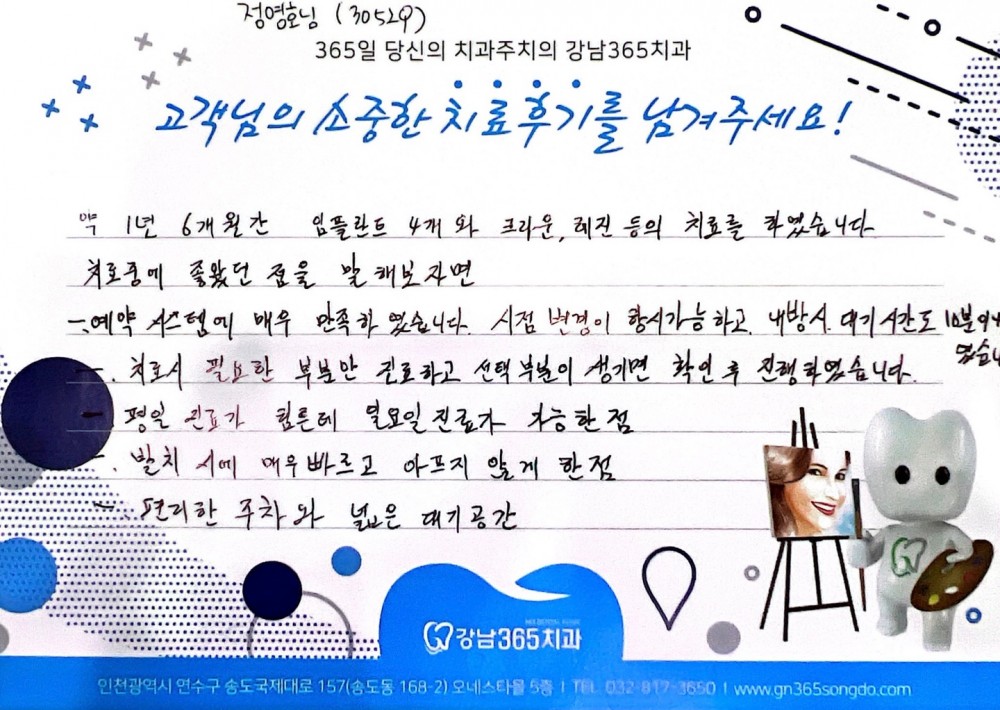 정영호님 (30529)
365일 당신의 치과주치의 강남365치과
고객님의 소중한 치료후기를 남겨주세요!
약 1년 6개월간 임플란트 4개 와 크라운, 레진 등의 치료를 하였습니다.
치료중에 좋았던 점을 말 해보자면
-. 예약 시스템에 매우 만족하 였습니다. 시점 변경이 항시가능하고, 내방시 대기시간도 10분이내
였습니
-. 치료시 필요한 부분만 진료하고 선택부분이 생기면 확인 후 진행하였습니다.
- 평일 진료가 힘든데 일요일 진료가 가능한 점
-. 발치 시에 매우빠르고 아프지 않게 한점
- 편리한 주차 와 넓은 대기공간
강남365치과
인천광역시 연수구 송도국제대로 157(송도동 168-2) 오네스타몰 5층 | TEL 032-817-3650 | www.gn365songdo.com